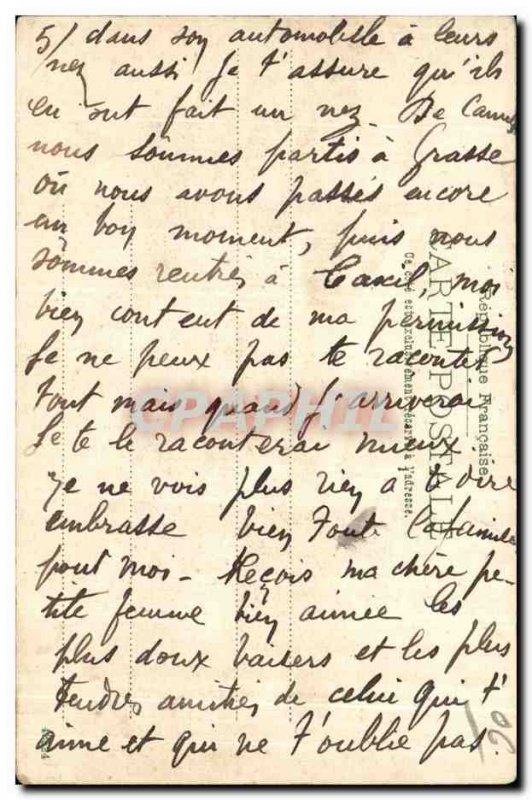 5/ dans son automobille à leurs
nez aussi je t'assure qu'ils
en ont fait un nez. De Cannes
nous sommes partis à Grasse
où nous avons passés encore
un bon moment, puis nous
sommes rentrés à moi
bien content de ma permission
Je ne peux pas te raconter
tout mais quand j'arriverai
Je te le raconterai mieux.
Je ne vois plus rien a te dire
embrasse bien toute la famille
pout moi - Reçois ma chère pe-
tite femme bien aimée les
plus doux baisers et les plus
tendres amitiés de celui qui t'
aime et qui ne t'oublie pas.
République Française
CARTE POSTALE
Ce côté est exclusivement réservé à l'adresse.
CPAPHIL